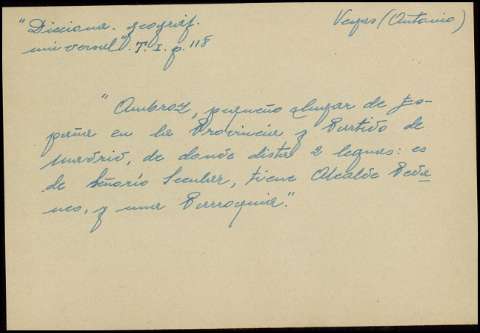 "Dicciona. geográf.
universal". T. I. p. 118
Vegas (Antonio)
"Ambroz, pequeño lugar de Es-
paña en la Provincia y Partido de
Madrid, de donde dista 2 leguas: es
de Señorío Secular, tiene Alcalde Pedá-
neo, y una Parroquia".